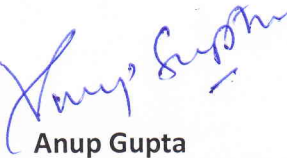 Anup Gupta
Anup Gupta